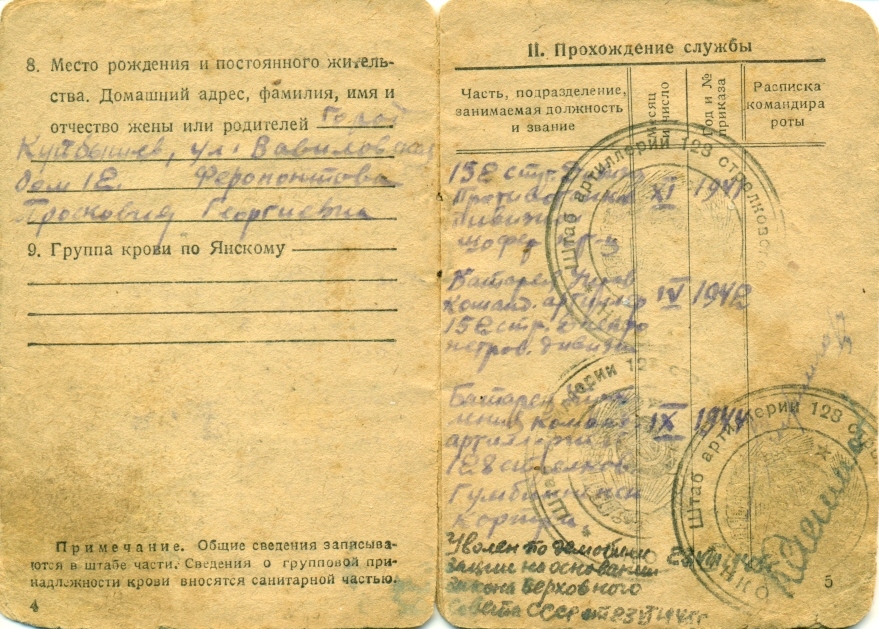 8. Место рождения и постоянного житель-
ства. Домашний адрес, фамилия, имя и
отчество жены или родителей город
Куйбышев, ул. Вавиловская
дом 12. Ферапонтова
Георгиевна
9. Группа крови по Янскому
Примечание. Общие сведения записыва-
ются в штабе части. Сведения о групповой при-
надлежности крови вносятся санитарной частью.
4
II. Прохождение службы
Часть, подразделение, занимаемая должность и звание
Месяц и число
Год и № приказа
Расписка командира роты
152 стр. XI 1941
дивизия
шофер
Батарея Управ
команд. артиллер IV 1942
152 стр. Днепро
петров. дивизия
Батарея
IX 1944
артиллерии
128 стрелков
Гумбиннен
Корпуса
Уволен по демобили
зации на основании
закона Верховного
Совета СССР от 23 VI 1945 г
Штаб артиллерии 128 стрелкового
артиллерии 128
Штаб артиллерии 128
5